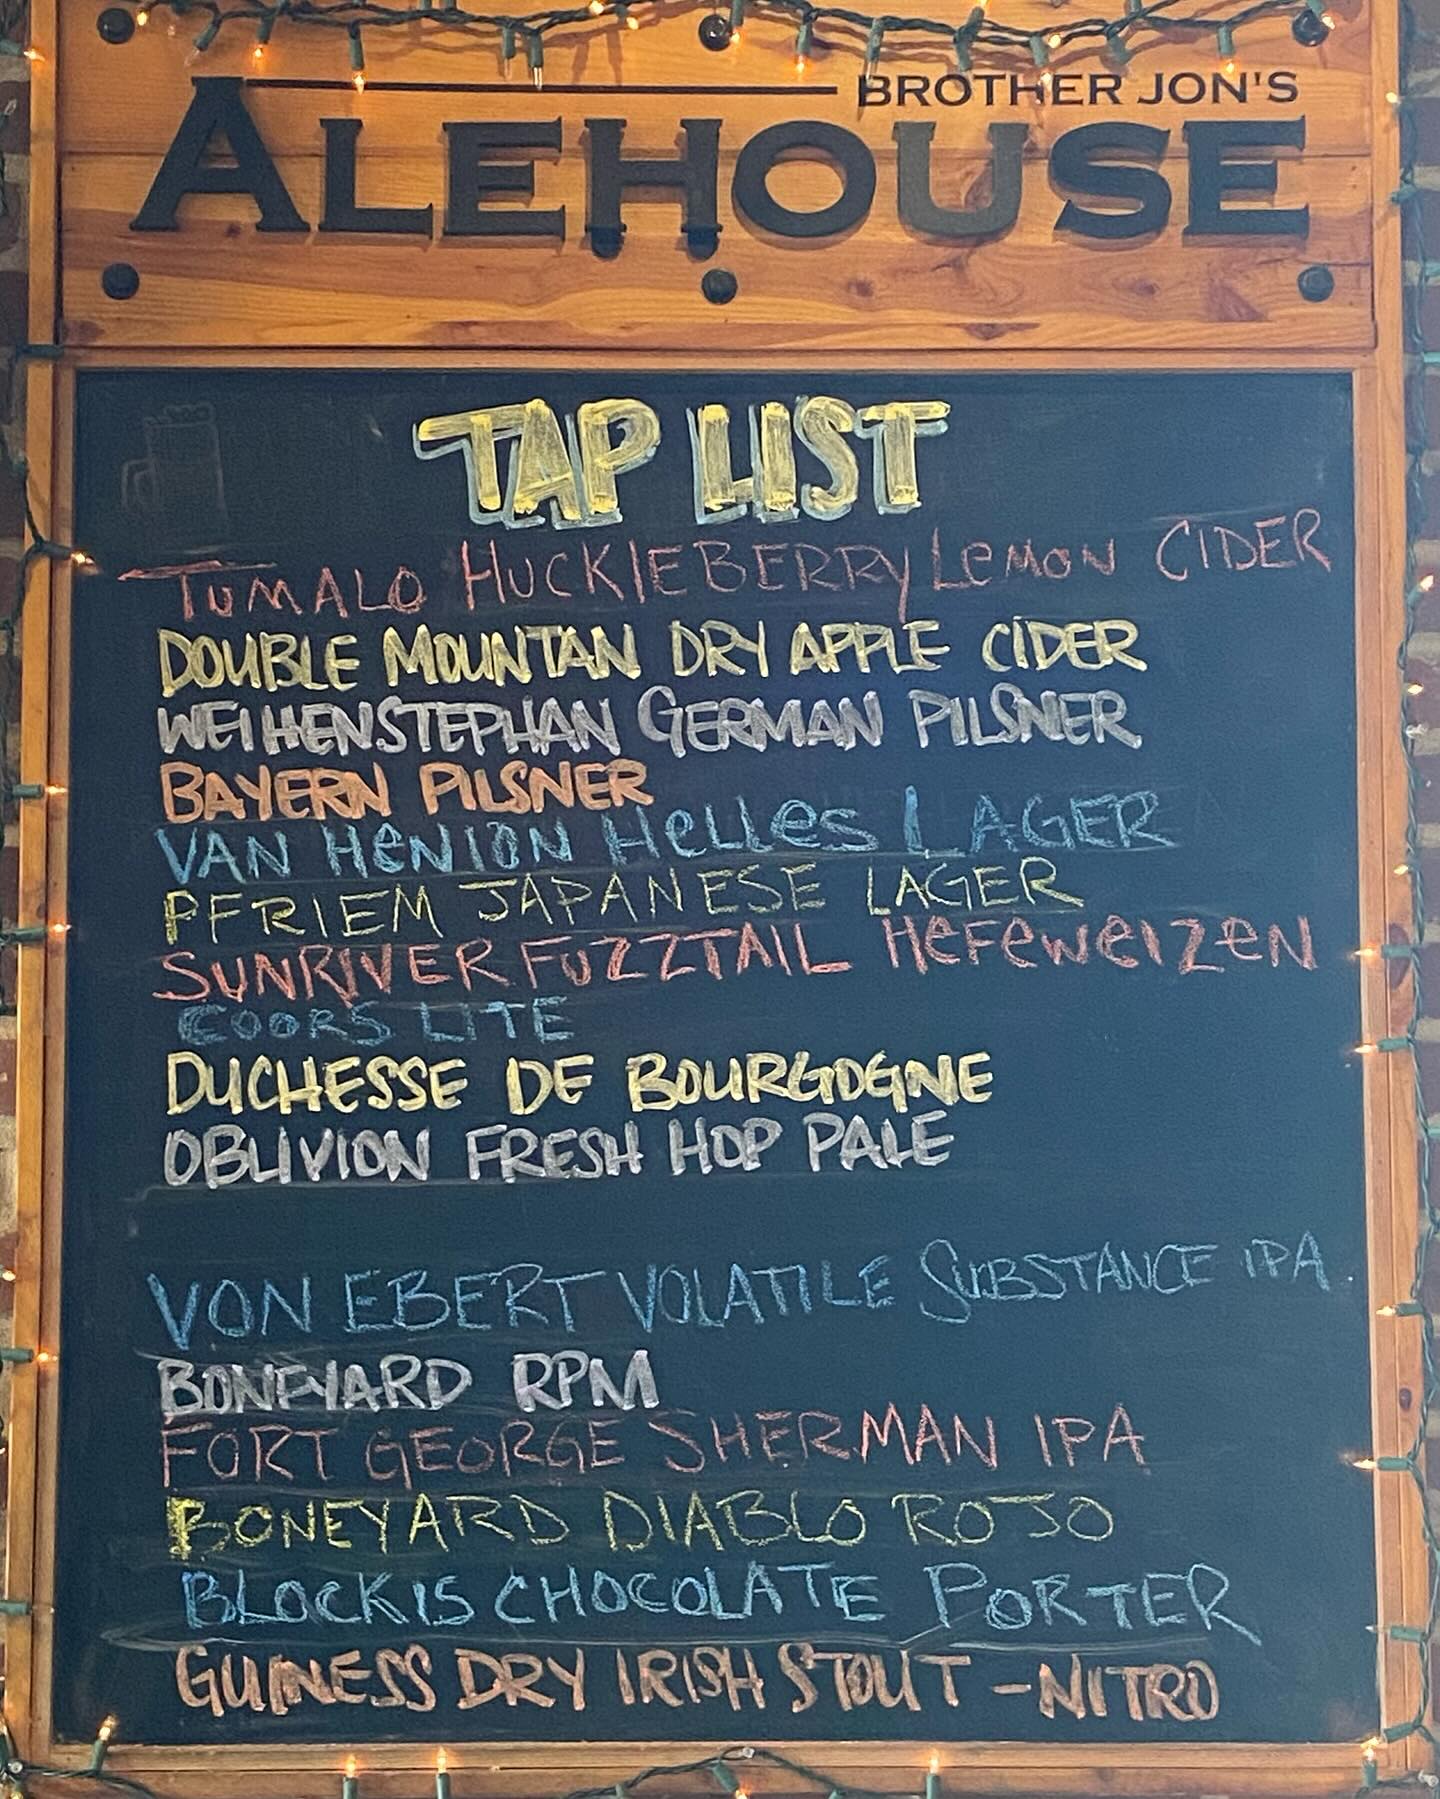 BROTHER JON'S
ALEHOUSE
TAP LIST
TUMALO HUCKLEBERRY LEMON CIDER
DOUBLE MOUNTAN DRY APPLE CIDER
WEIHENSTEPHAN GERMAN PILSNER
BAYERN PILSNER
VAN HENION HELLES LAGER
PFRIEM JAPANESE LAGER
SUNRIVER FUZZTAIL HEFEWEIZEN
COORS LITE
DUCHESSE DE BOURGOGNE
OBLIVION FRESH HOP PALE
VON EBERT VOLATILE SUBSTANCE IPA
BONEYARD RPM
FORT GEORGE SHERMAN IPA
BONEYARD DIABLO ROJO
BLOCK 15 CHOCOLATE PORTER
GUINESS DRY IRISH STOUT - NITRO